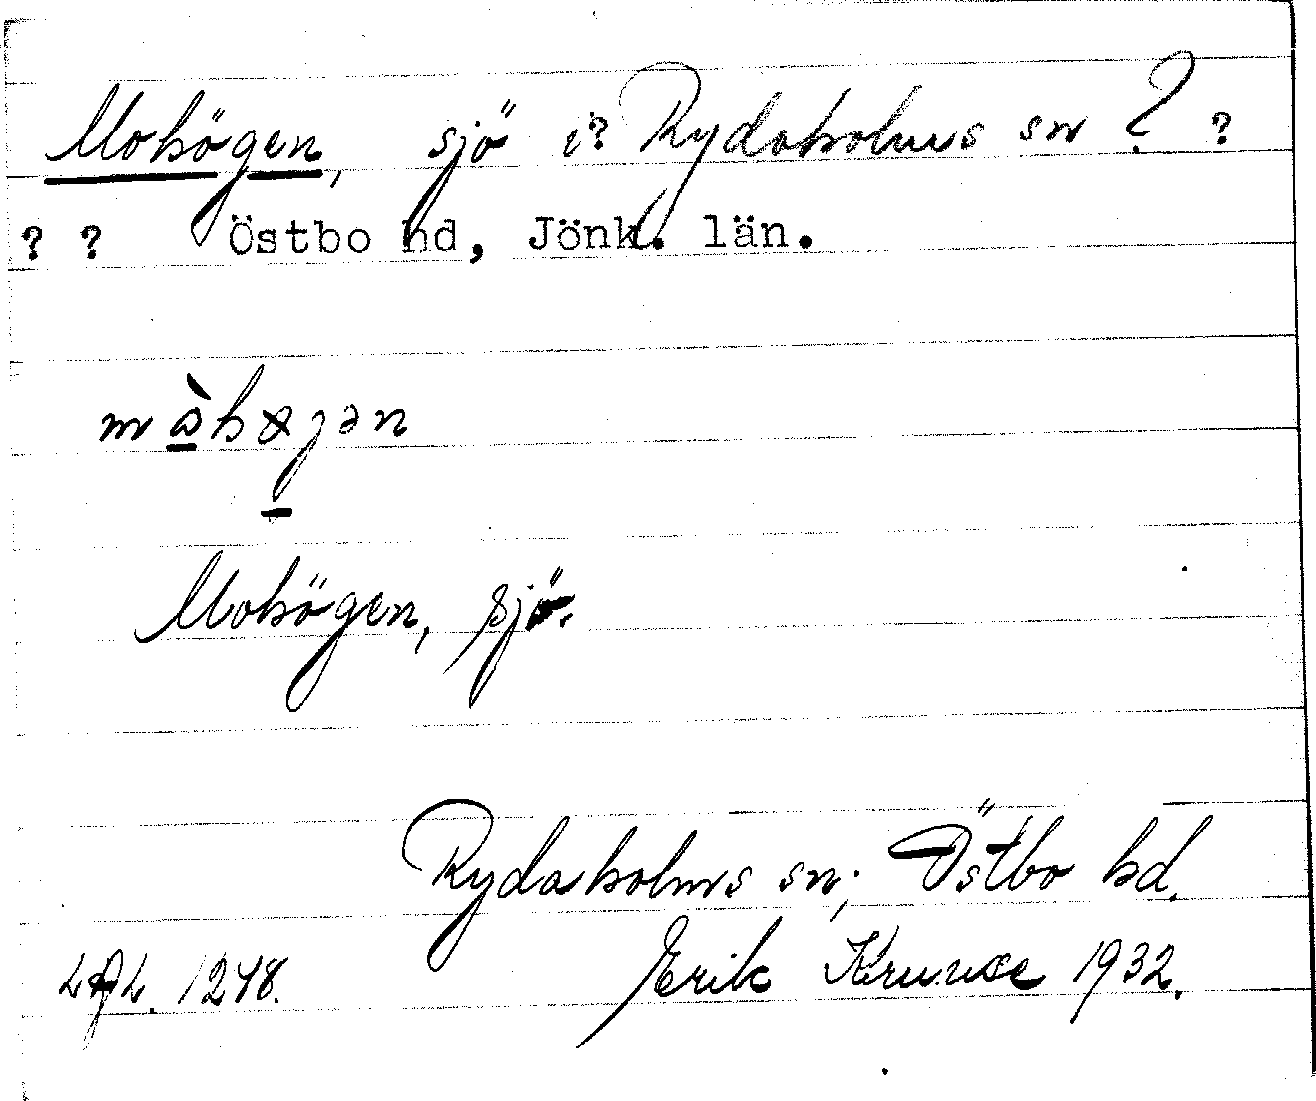 Mohögen, sjö i? Rydaholms sn ? ?
? ? Östbo hd, Jönk. län.
Mohögen, sjö.
Rydaholms sn; Östbo hd.
1248. Erik Kruuse 1932.